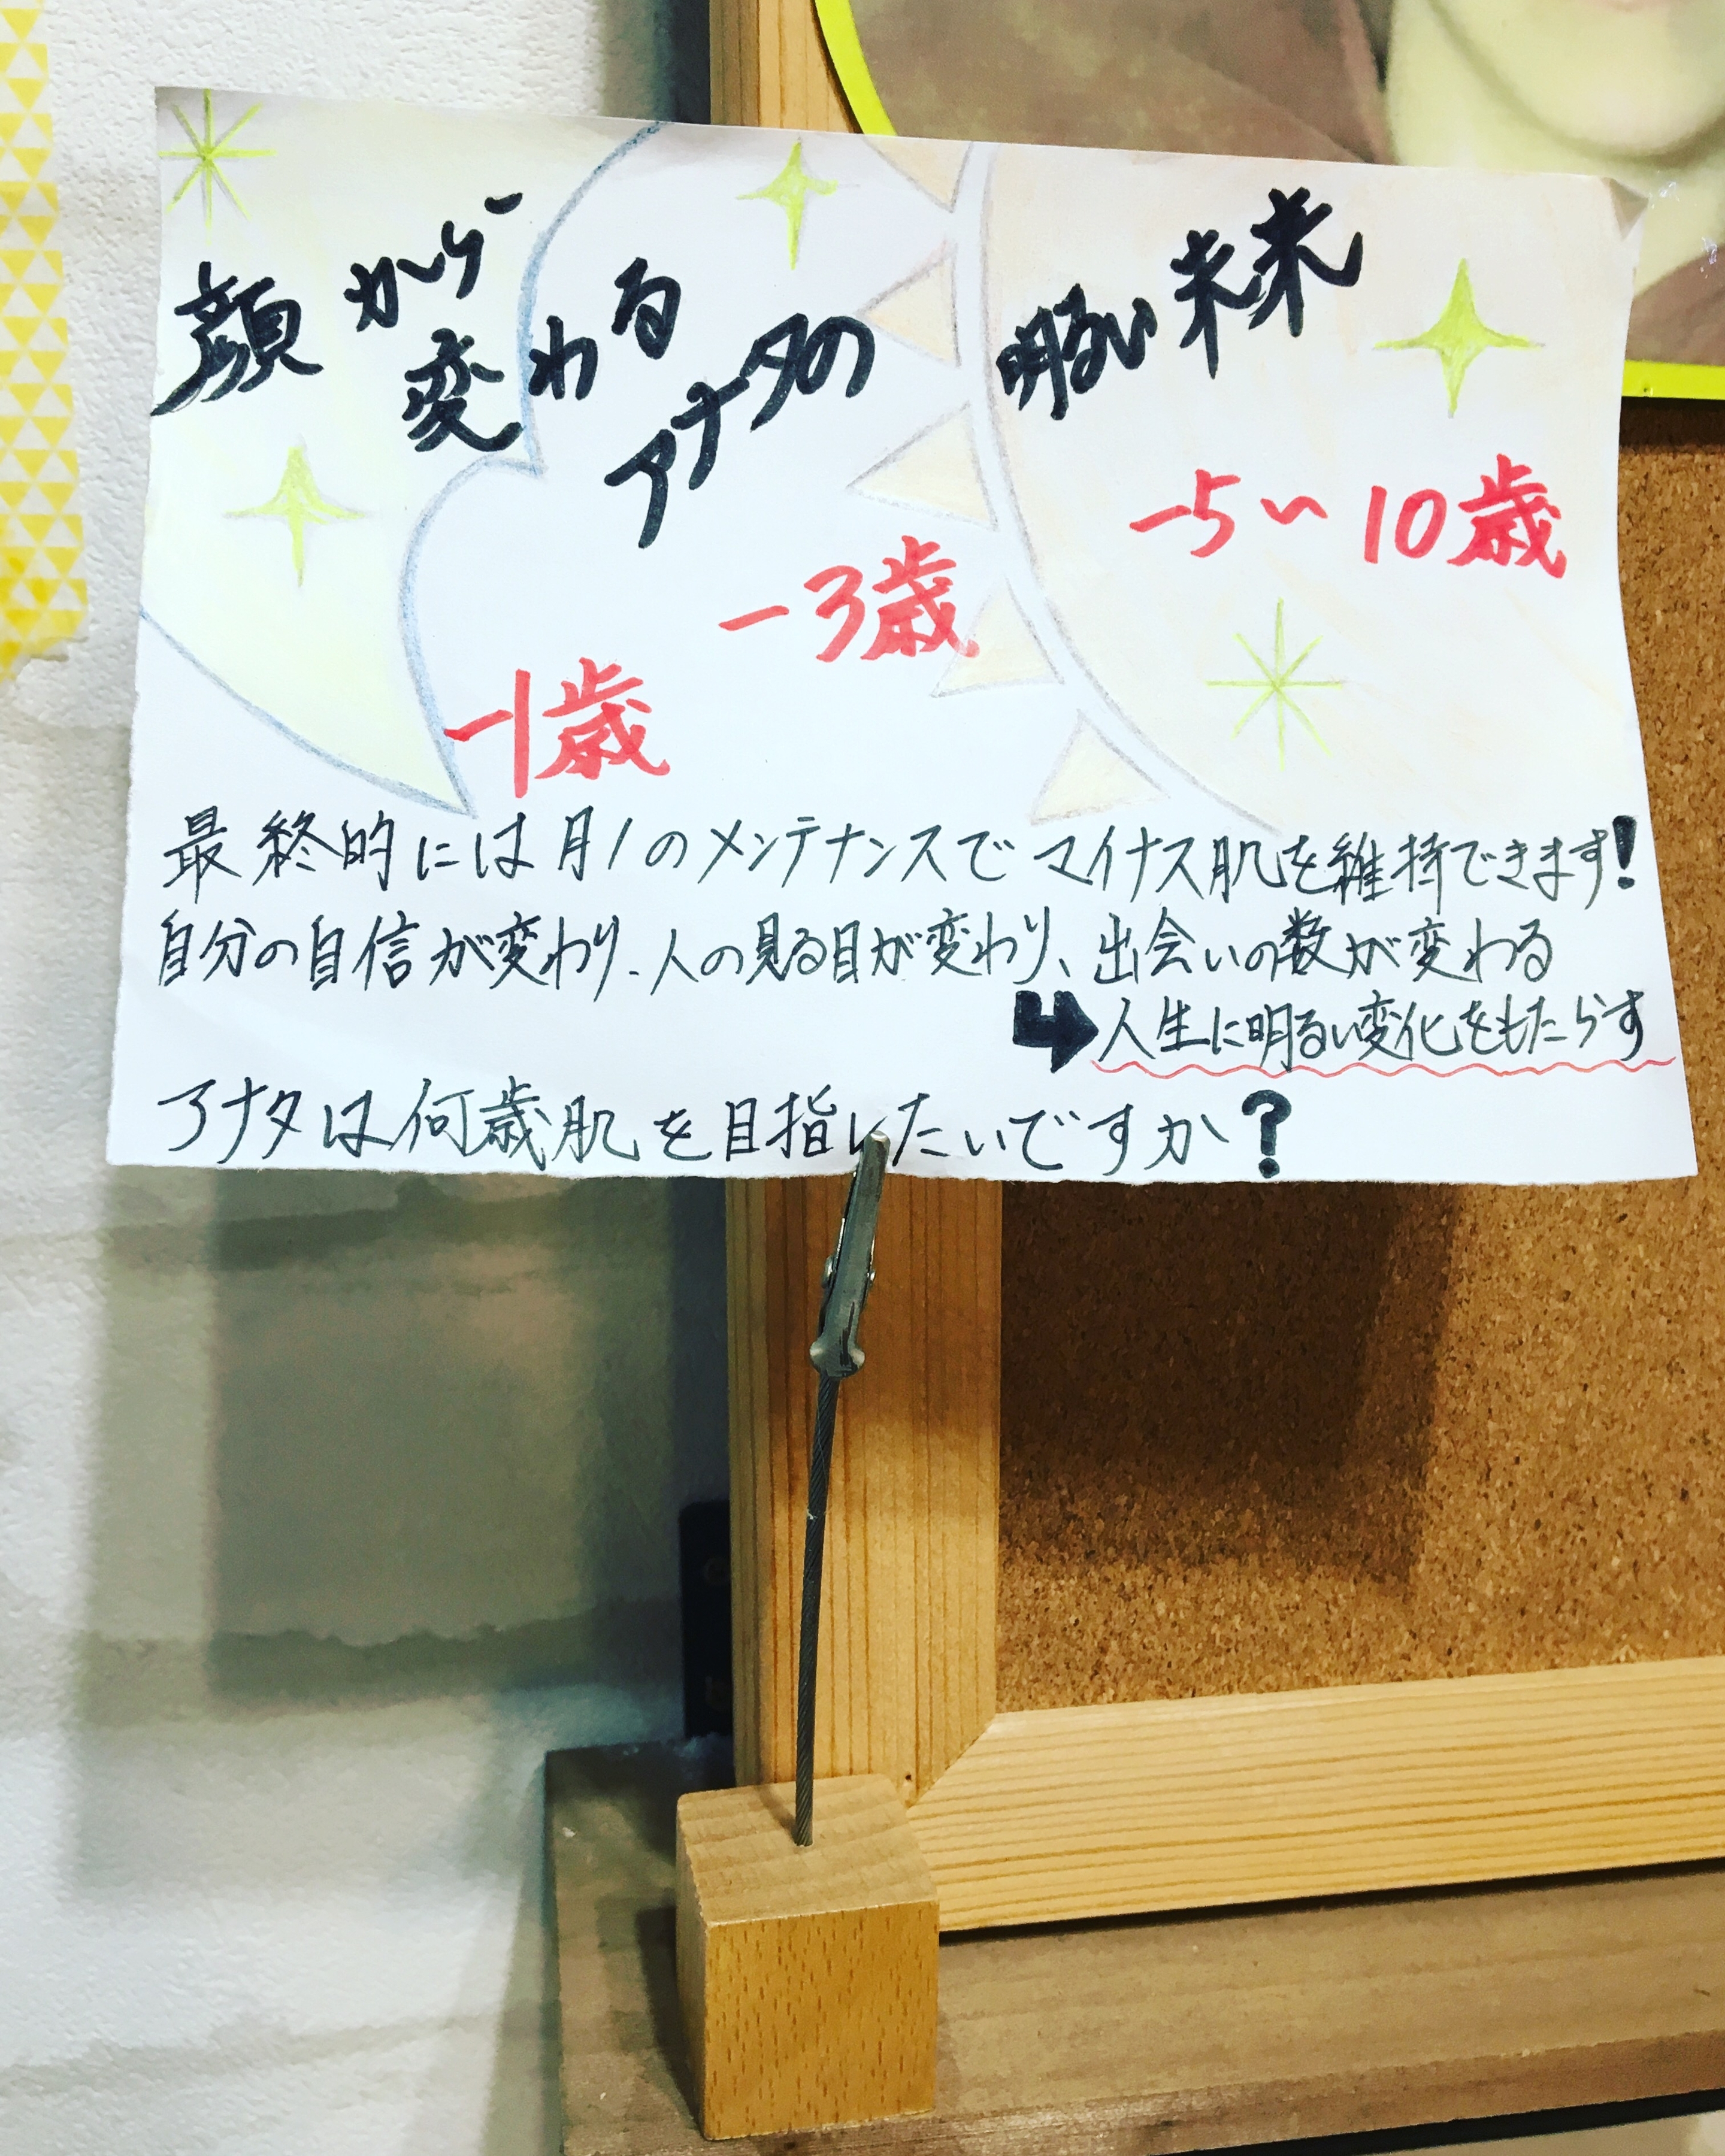 顔から
変わる
アナタの
明るい未来
-1歳
-3歳
-5〜10歳
最終的には月1のメンテナンスでマイナス肌を維持できます!
自分の自信が変わり、人の見る目が変わり、出会いの数が変わる
人生に明るい変化をもたらす
アナタは何歳肌を目指したいですか?